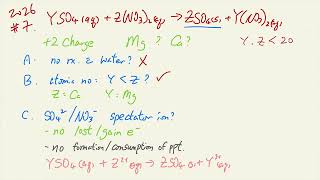 2026
#7. YSO4(aq) + Z(NO3)2(aq) → ZSO4(s) + Y(NO3)2(aq)
+2 charge Mg? Ca? Y. Z < 20
A. no rx. ? water? ✗
B. atomic no: Y < Z? ✓
Z = Ca Y: Mg
C. SO4²⁻/NO3⁻ spectator ion?
- no lost/gain e⁻
- no formation/consumption of ppt.
YSO4(aq) + Z²⁺(aq) → ZSO4(s) + Y²⁺(aq)